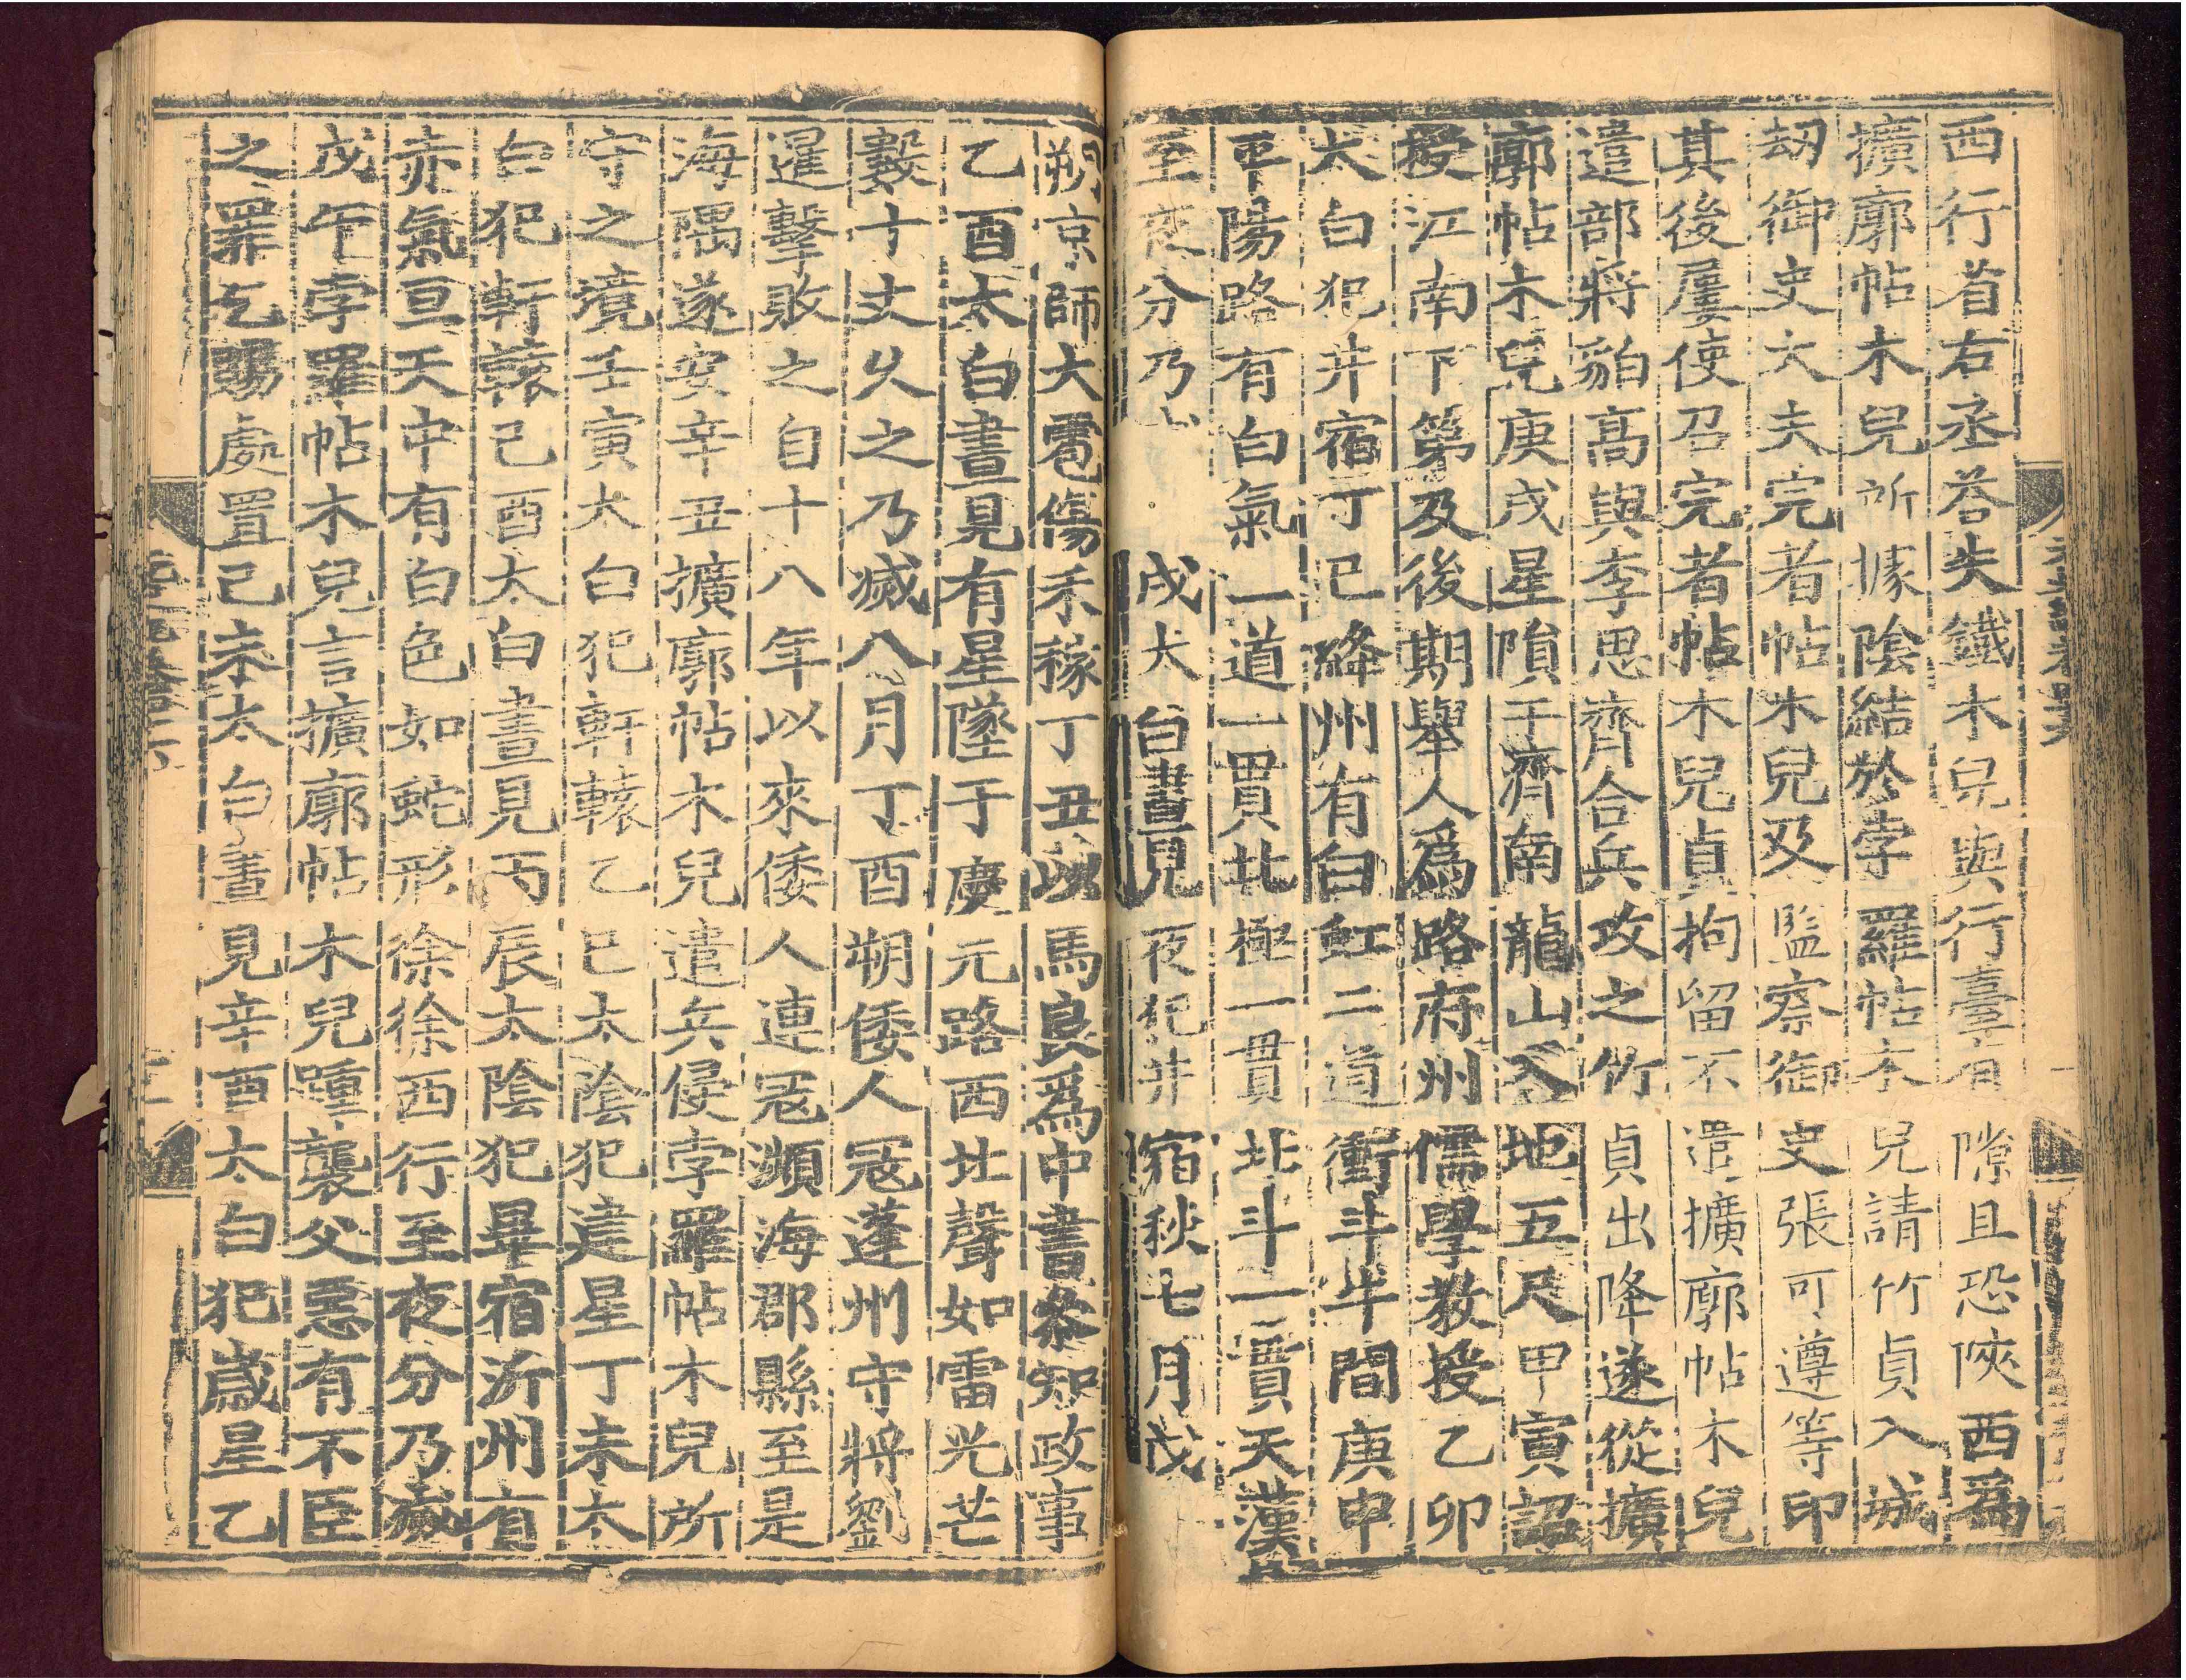 西行省右丞荅失鐵木兒與行臺有隙且恐陝西爲
擴廓帖木兒所據陰結於孛羅帖木兒請竹貞入城
劫御史大夫完者帖木兒及監察御史張可遵等印
其後屢使召完者帖木兒貞拘留不遣擴廓帖木兒
遣部將貊高與李思齊合兵攻之竹貞出降遂從擴
廓帖木兒庚戌星隕于濟南龍山入地五尺甲寅詔
授江南下第及後期舉人爲路府州儒學教授乙卯
太白犯井宿丁巳絳州有白虹二道衝斗牛間庚申
平陽路有白氣一道一貫北極一貫北斗一貫天漢
至夜分乃 戌太白晝見夜犯井宿秋七月戊
朔京師大雹傷禾稼丁丑以馬良爲中書參知政事
乙酉太白晝見有星墜于慶元路西北聲如雷光芒
數十丈久之乃滅八月丁酉朔倭人冦蓬州守將劉
暹擊敗之自十八年以來倭人連冦瀕海郡縣至是
海隅遂安辛丑擴廓帖木兒遣兵侵孛羅帖木兒所
守之境壬寅太白犯軒轅乙巳太陰犯建星丁未太
白犯軒轅己酉太白晝見丙辰太陰犯畢宿沂州有
赤氣亘天中有白色如蛇形徐徐西行至夜分乃滅
戊午孛羅帖木兒言擴廓帖木兒踵襲父惡有不臣
之罪乞賜處置己未太白晝見辛酉太白犯歲星乙